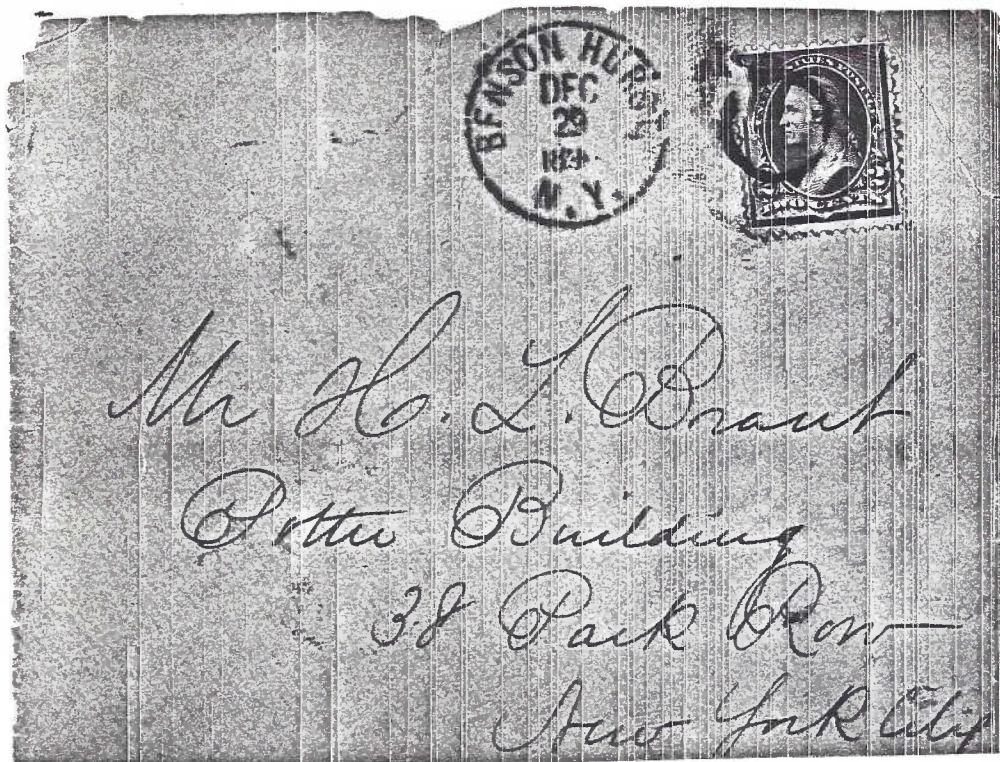 BENSON HURST
DEC
29
N.Y.
TWO CENTS
Mr H. L. Brant
Potter Building
38 Park Row
New York City